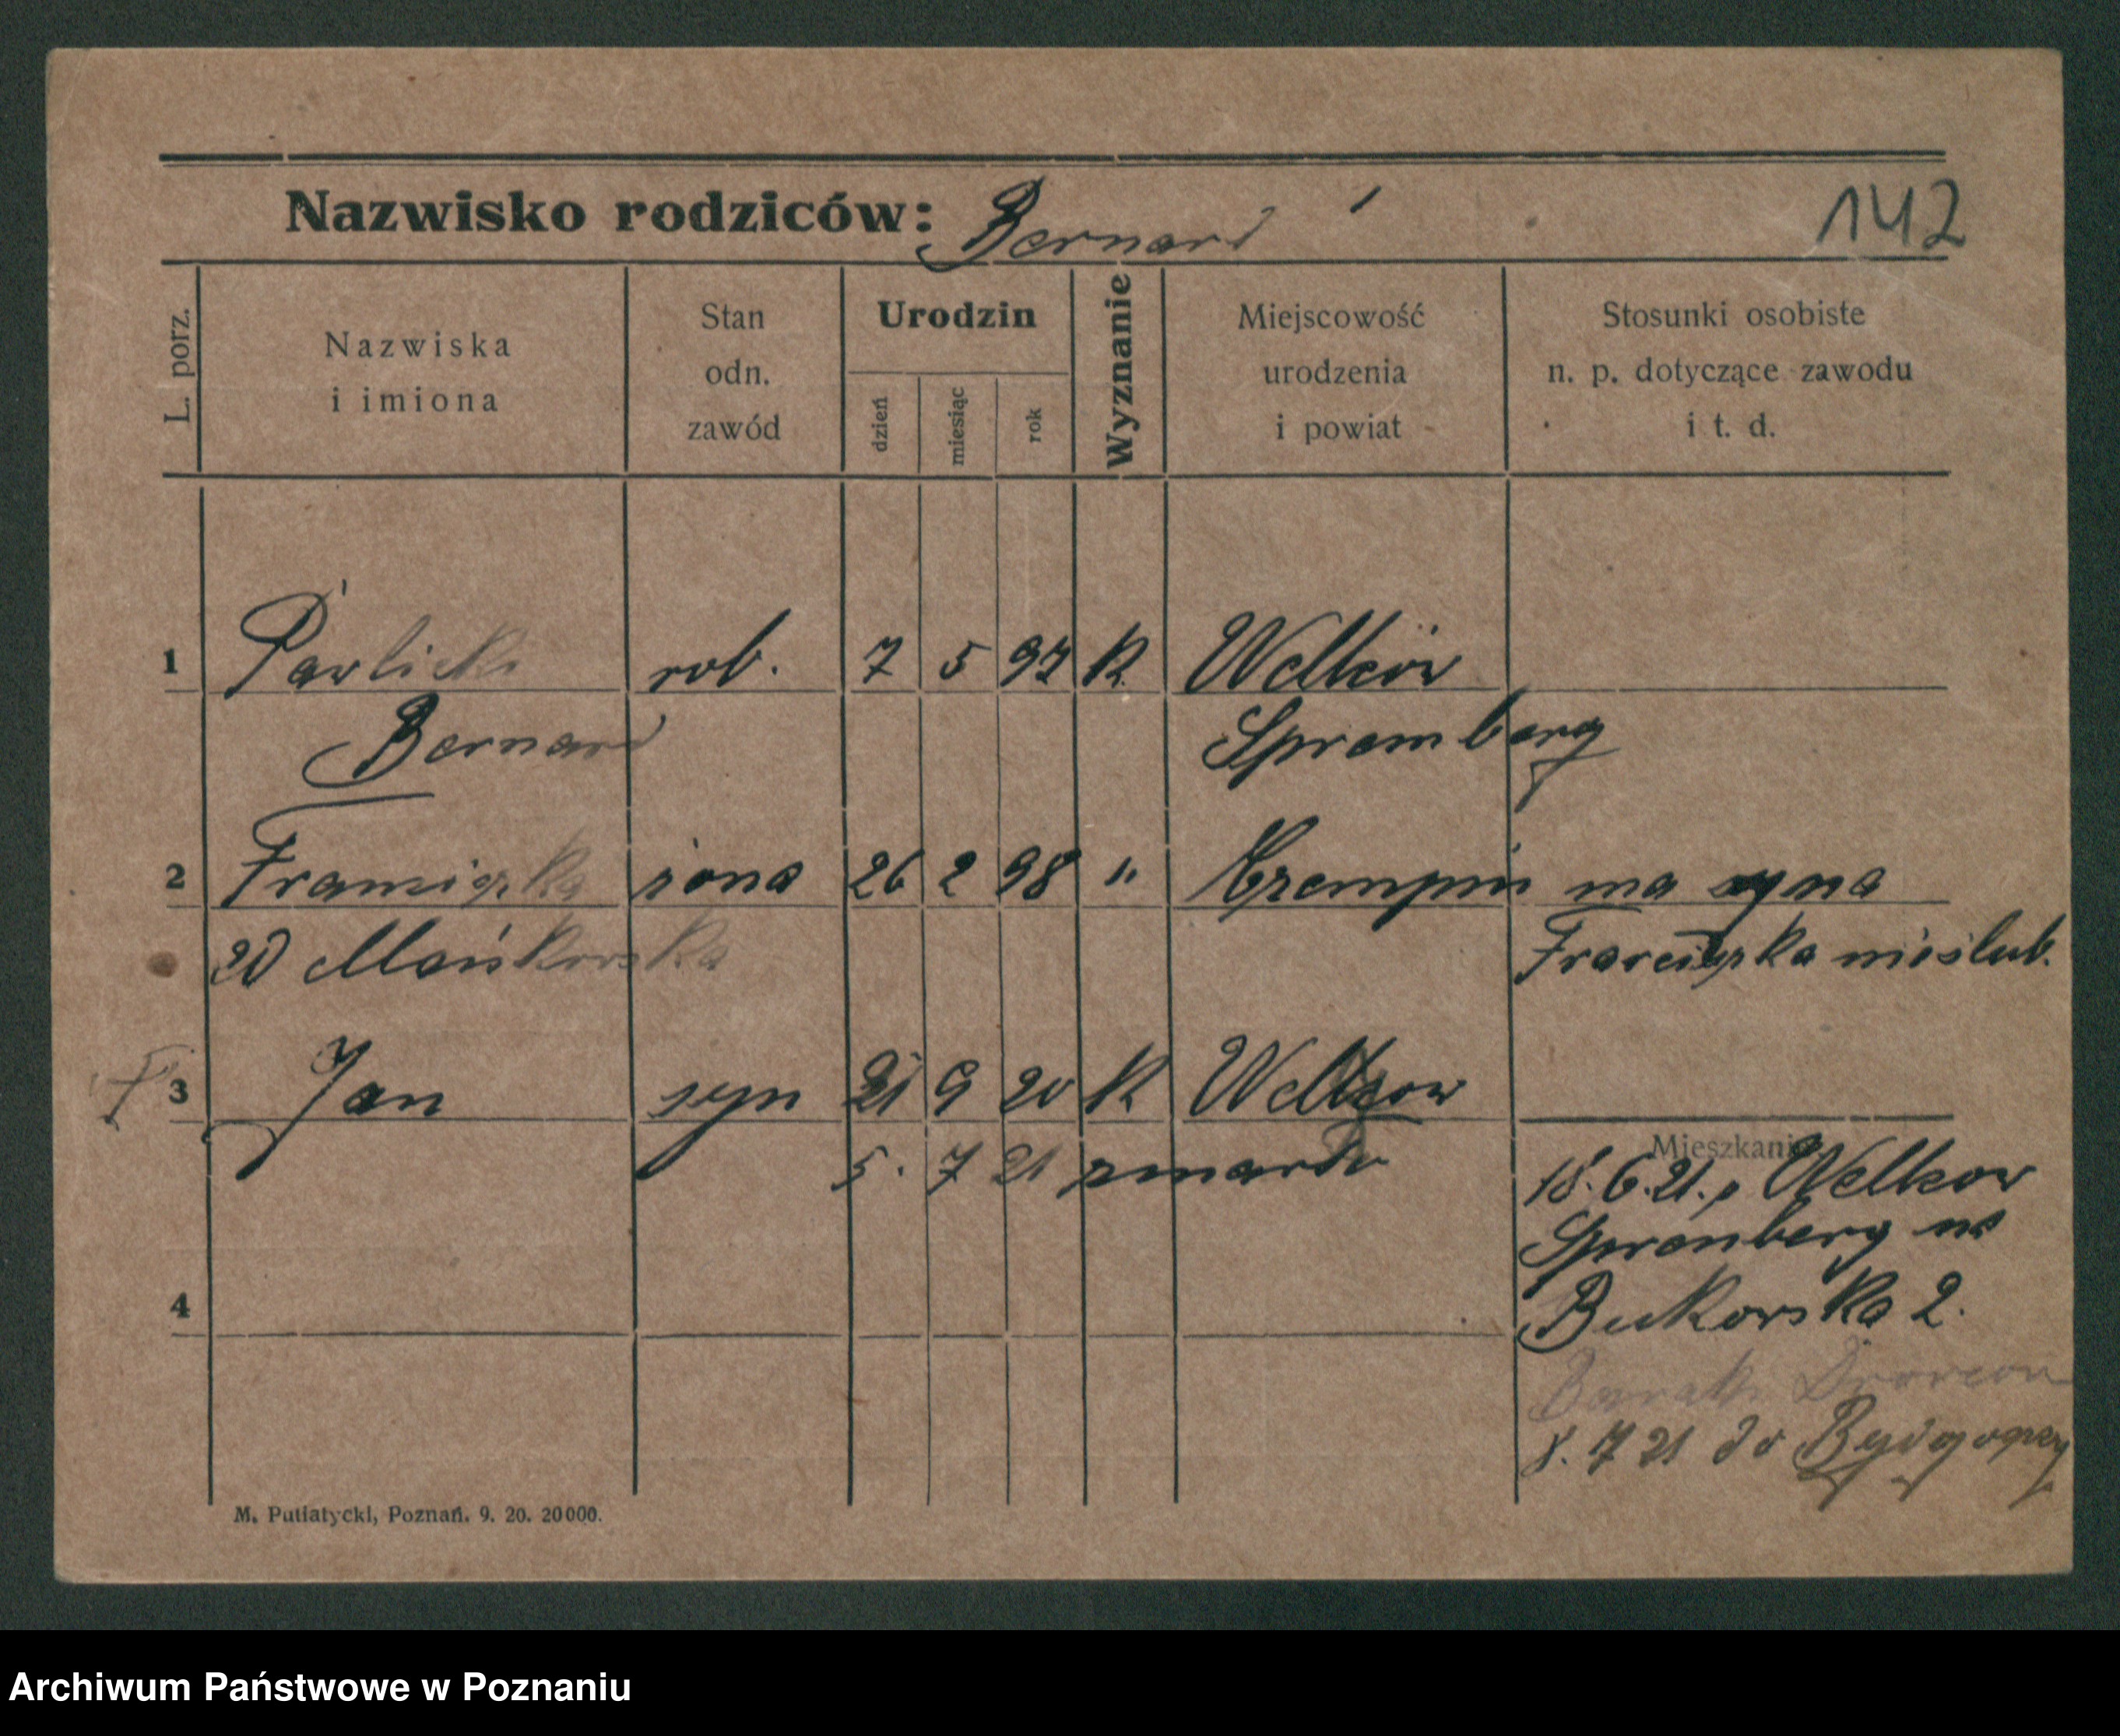 Nazwisko rodziców: Bernard 142
L. porz. Nazwiska i imiona Stan odn. zawód Urodzin dzień miesiąc rok Wyznanie Miejscowość urodzenia i powiat Stosunki osobiste n. p. dotyczące zawodu i t. d.
1 Pawlicki rob. 7 5 97 K. Welkow
Bernard Spremberg
2 Franciszka żona 26 2 98 " Czempin ma syna
zd Mańkowska Franciszka nieślub.
3 Jan syn 21 9 20 K Welkow
5. 7 21 zmarł
Mieszkanie
18. 6. 21. z Welkow
Spremberg na
4 Bukowska 2.
Baraki
8. 7 21 do Bydgoszczy
M. Putiatycki, Poznań. 9. 20. 20000.
Archiwum Państwowe w Poznaniu